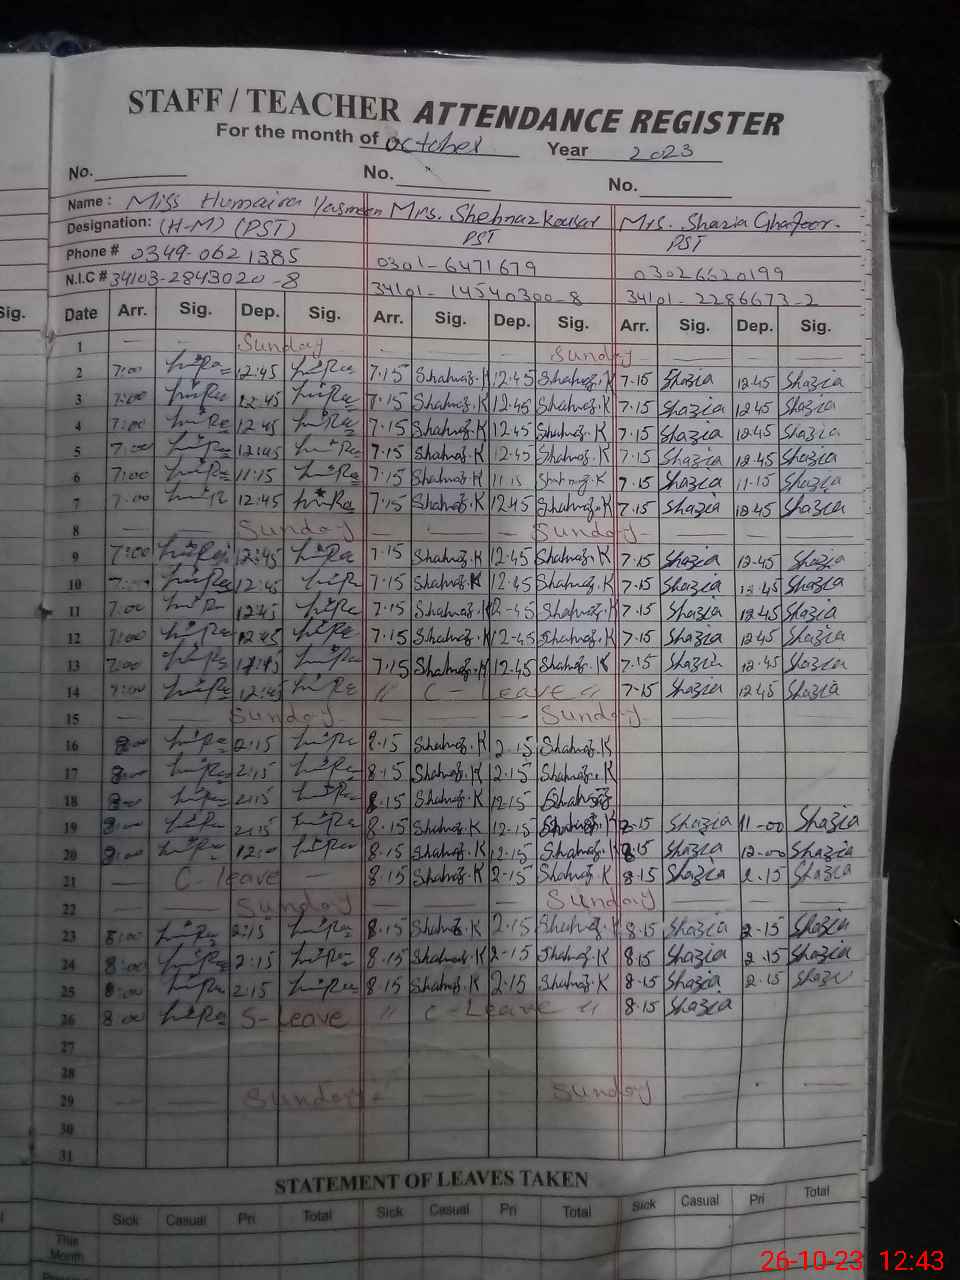 STAFF / TEACHER ATTENDANCE REGISTER
For the month of October Year 2023
No. No. No.
Name : Miss Humaira Yasmeen Mrs. Shehnaz Kousar Mrs. Shazia Ghafoor.
Designation: (H-M) (PST) PST PST
Phone # 0349-0621385 0301-6471679 03026620199
N.I.C # 34103-2843020-8 34101-14540300-8 34101-2286673-2
Date Arr. Sig. Dep. Sig. Arr. Sig. Dep. Sig. Arr. Sig. Dep. Sig.
1 — — Sunday — — Sunday — —
2 7:00 12:45 7.15 Shahnaz.K 12.45 Shahnaz.K 7.15 Shazia 12.45 Shazia
3 7:00 12:45 7.15 Shahnaz.K 12.45 Shahnaz.K 7.15 Shazia 12.45 Shazia
4 7:00 12:45 7.15 Shahnaz.K 12.45 Shahnaz.K 7.15 Shazia 12.45 Shazia
5 7:00 12:45 7.15 Shahnaz.K 12.45 Shahnaz.K 7.15 Shazia 12.45 Shazia
6 7:00 11:15 7.15 Shahnaz.K 11.15 Shahnaz.K 7.15 Shazia 11.15 Shazia
7 7:00 12:45 7.15 Shahnaz.K 12.45 Shahnaz.K 7.15 Shazia 12.45 Shazia
8 — — Sunday — — — Sunday — — —
9 7:00 12:45 7.15 Shahnaz.K 12.45 Shahnaz.K 7.15 Shazia 12.45 Shazia
10 12:45 7.15 Shahnaz.K 12.45 Shahnaz.K 7.15 Shazia 12.45 Shazia
11 7:00 12:45 7.15 Shahnaz.K 12-45 Shahnaz.K 7.15 Shazia 12.45 Shazia
12 7:00 12:45 7.15 Shahnaz.K 12-45 Shahnaz.K 7.15 Shazia 12.45 Shazia
13 7:00 12:45 7.15 Shahnaz.K 12.45 Shahnaz.K 7.15 Shazia 12.45 Shazia
14 7:00 12:45 " C - Leave " 7.15 Shazia 12.45 Shazia
15 — — Sunday — — — Sunday
16 8:00 2:15 8.15 Shahnaz.K 2.15 Shahnaz.K
17 8:00 2:15 8.15 Shahnaz.K 2.15 Shahnaz.K
18 8:00 2:15 8.15 Shahnaz.K 12.15 Shahnaz
19 8:00 2:15 8.15 Shahnaz.K 12.15 Shahnaz.K 8.15 Shazia 11-00 Shazia
20 8:00 12:00 8.15 Shahnaz.K 12.15 Shahnaz.K 8.15 Shazia 12-00 Shazia
21 — C-leave — 8.15 Shahnaz.K 2.15 Shahnaz.K 8.15 Shazia 2.15 Shazia
22 — — Sunday — — — Sunday — — —
23 8:00 2:15 8.15 Shahnaz.K 2.15 Shahnaz.K 8.15 Shazia 2-15 Shazia
24 8:00 2:15 8.15 Shahnaz.K 2-15 Shahnaz.K 8.15 Shazia 2.15 Shazia
25 8:00 2:15 8.15 Shahnaz.K 2.15 Shahnaz.K 8.15 Shazia 2.15 Shazia
26 8:00 S-Leave " C-Leave " 8.15 Shazia
27
28
29 — Sunday Sunday — —
30
31
STATEMENT OF LEAVES TAKEN
Sick Casual Pri Total Sick Casual Pri Total Sick Casual Pri Total
This Month
26-10-23 12:43